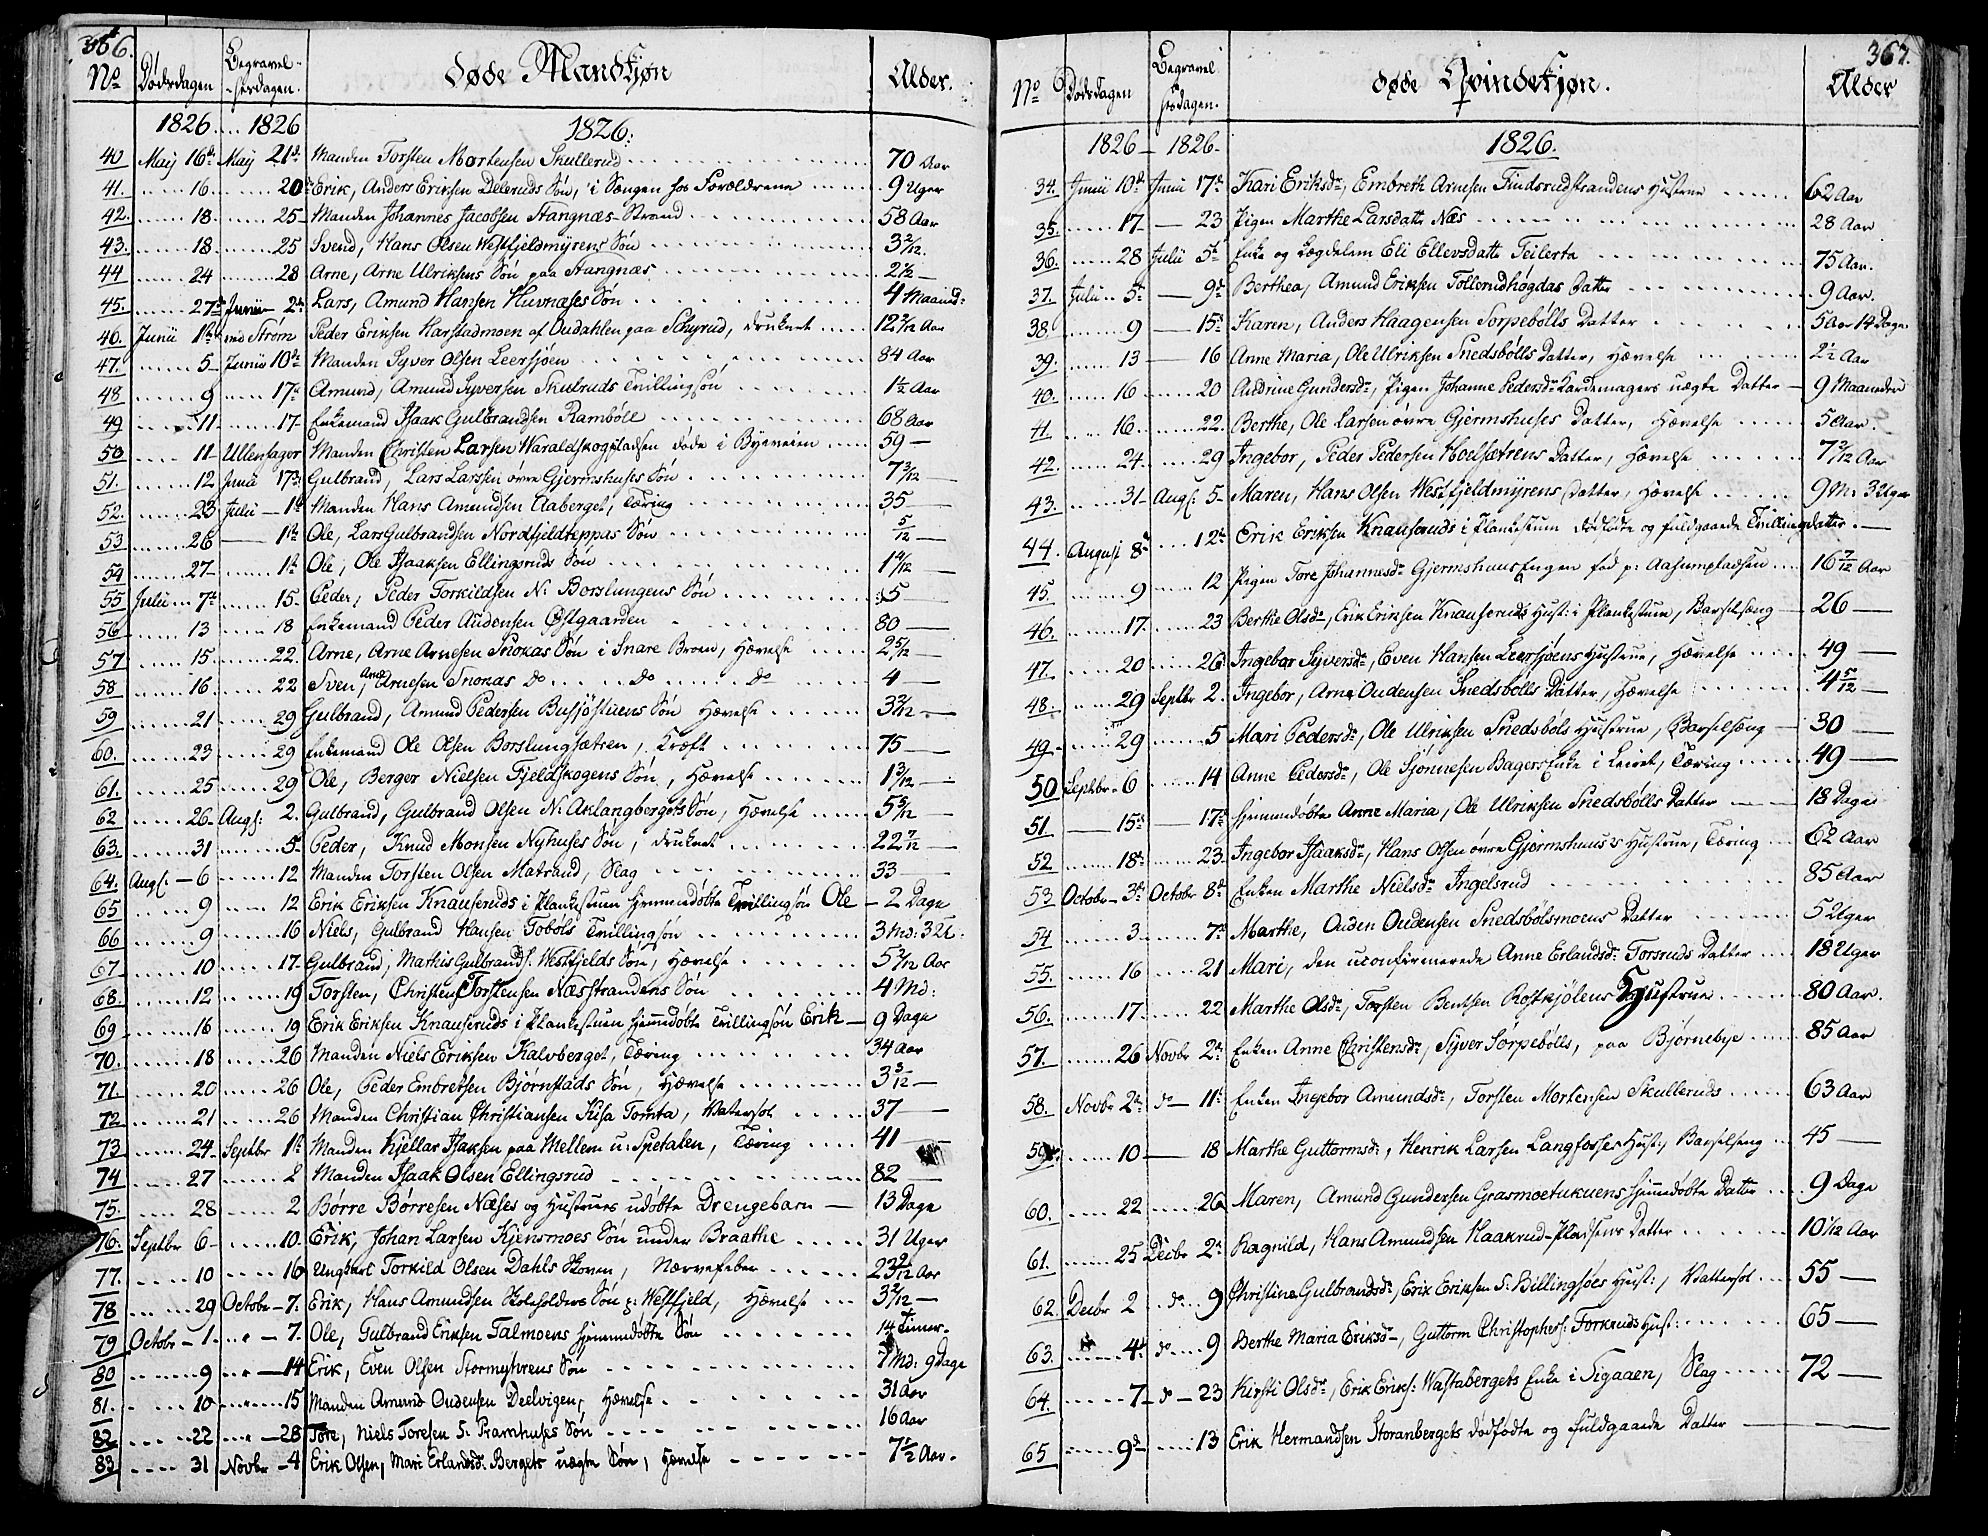 366.
No Dødsdagen Begravelsesdagen. døde Mandkjøn Alder.
1826 .... 1826 1826:
40 Maij 16de Maij 21de Manden Torsten Mortensen Skullerud 70 Aar
41. 16. 20de Erik, Anders Eriksen Deleruds Søn, i Sængen hos Forældrene 9 Uger
42. 18. 25 Manden Johannes Jacobsen Stangnæs-Strand 58 Aar
43. 18 25 Svend, Hans Olsen Westfjeldmyrens Søn 3 2/12.
44 24 28 Arne, Arne Ulriksens Søn paa Stangnæs 2 1/2 —
45. 27 Junii 2den Lars, Amund Hansen Huvnæses Søn 4 Maaned:
46. Junii 1ste ved Strøm Peder Eriksen Harstadmoen af Oudahlen paa Schyrud, druknet 12 2/12 Aar
47. 5 Junii 10de Manden Syver Olsen Leersjøen 84 Aar
48 9 17de Amund, Amund Syversen Skulruds Tvillingsøn 1 1/2 Aar
49 11 17 Enkemand Isaak Gulbrandsen Rambøll 68 Aar
50 11 Ullensager Manden Christen Larsen Haraldskogpladsen døde i Byeveien 59 —
51. 12 Junii 17 Gulbrand, Lars Larssen øvre Gjermshuses Søn 7 3/12 —
52. 23 Julii 1ste Manden Hans Amundsen Aaberget, Tæring 35 —
53 26 1ste Ole, Lars Gulbrandsen Nordfjeldteppas Søn 5/12 —
54 27 1ste Ole, Ole Isaaksen Ellingsruds Søn 1 4/12 —
55 Julii 7de 15. Peder, Peder Torkildsen N. Borslungens Søn 5 —
56 13 18 Enkemand Peder Audensen Østgaarden 80 —
57 15. 22. Arne, Arne Arnesen Snokas Søn i Snare Broen, Hævelse 2 5/12 —
58 16 22 Sven, Arne Arnesen Snonas do do do 4 —
59 21 29 Gulbrand, Amund Pedersen Busjøstuens Søn Hævelse 3 2/12 —
60. 23 29 Enkemand Ole Olsen Borslungsætren, Kræft 75 —
61. 25 29 Ole, Berger Nielsen Fjeldskogens Søn, Hævelse 1 3/12 —
62 26 Augs: 2. Gulbrand, Gulbrand Olsen N. Aklangbergets Søn, Hævelse 5 3/12 —
63. 31 5 Peder, Knud Monsen Nyhuses Søn, druknet 22 7/12 —
64. Augs: 6 12 Manden Torsten Olsen Matrand, Slag 33 —
65 9 12 Erik Eriksen Knauseruds i Plankestuen hjemmedøbte Tvillingsøn Ole 2 Dage
66 9 16 Niels, Gulbrand Hansen Tobøls Tvillingsøn 3 Md: 3 U:
67 10 17. Gulbrand, Mathis Gulbrands: Westfjelds Søn, Hævelse 5 2/12 Aar
68. 12 19 Torsten, Christen Torstensen Næsstrandens Søn 4 Md:
69 16 19 Erik Eriksen Knauseruds i Plankestuen hjemmedøbte Tvillingsøn Erik 9 Dage
70. 18 26 Manden Niels Eriksen Kalvberget, Tæring 34 Aar
71. 20 26 Ole, Peder Embretsen Bjørnstads Søn, Hævelse 3 3/12 —
72 21 26 Manden Christian Christiansen Kisa Tomta, Vatersot 37 —
73 24. Septbr 1ste Manden Kjellas Isaksen paa Mellem u: Spetalen, Tæring 41 —
74 27 2 Manden Isaak Olsen Ellingsrud 82 —
75. 28 2 Børre Børresen Næses og Hustrues udøbte Drengebarn 13 Dage
76. Septbr 6 10. Erik, Johan Larsen Kjensmoes Søn under Braathe 31 Uger
77. 10 16 Ungkarl Torkild Olsen Dahls Skoven, Nervefeber 23 2/12 Aar
78 29 Octobr 7. Erik, Hans Amundsen Skoleholders Søn p: Westfjeld, Hævelse 3 2/12 —
79 Octobr 1. 7. Ole, Gulbrand Eriksen Talmoens hjemmedøbte Søn 14 Timer.
80 9 14 Erik, Even Olsen Stormyhrens Søn 7 Md: 9 Dage
81. 10 15 Manden Amund Oudensen Deelvigen, Hævelse 31 Aar
82 22 28 Tore, Niels Toresen S. Pramhuses Søn 16 Aar
83 31 Novbr 4 Erik Olsen, Mari Erlandsd. Bergets uægte Søn, Hævelse 7 1/2 Aar.
367.
No Dødsdagen Begravelsesdagen. døde Qvindekjøn. Alder
1826 — 1826 1826.
34. Junii 10de Junii 17de Kari Eriksdr, Embreth Arnesen Findsrudstrandens Hustrue 62 Aar
35. 17 23 Pigen Marthe Larsdatt: Næs 28 Aar
36. 28 Julii 5te Enke og Lægdelem Eli Ellevsdatt: Teilerta 75 Aar.
37. Julii 5te 9de Berthea, Amund Eriksen Tollerudhøgdas Datter 9 Aar.
38. 9 15de Karen, Anders Haagensen Sorpebølls Datter 5 Aar 14 Dage
39. 13 16 Anne Maria, Ole Ulriksen Snedsbølls Datter, Hævelse 2 1/2 Aar
40. 16 20 Andrine Gundersdr, Pigen Johanne Pedersdr Kardemagers uægte Datter 9 Maaneder
41 16. 22. Berthe, Ole Larsen øvre Gjermshuses Datter, Hævelse 5 Aar.
42. 24 29 Ingebor, Peder Pedersen Hoelsætrens Datter, Hævelse 7 2/12 Aar
43. 31 Augs: 5 Maren, Hans Olsen Westfjeldmyrens Datter, Hævelse 9 M: 3 Uger
44. August 8de 12te Erik Eriksen Knauseruds i Plankestuen dødfødte og fuldgaaede Tvillingdatter. —
45. 9 12 Pigen Tore Johannesdr Gjermshuus Engen fød p: Aasumpladsen 16 7/12 Aar
46. 17. 23 Berthe Olsdr, Erik Eriksen Knauseruds Hust: i Plankestuen, Barselseng 26 —
47. 20 26 Ingebor Syversdr, Even Hansen Leersjøens Hustrue, Hævelse 49 —
48. 29 Septbr 2. Ingebor, Arne Oudensen Snedsbølls Datter, Hævelse 4 5/12 —
49. 29 5 Mari Pedersdr, Ole Ulriksen Snedsbøls Hustrue, Barselsæng 30 —
50 Septbr 6 14 Anne Pedersdr, Ole Sjønnesen Bagers Enke i Leiret, Tæring 49 —
51. 15de 17de hjemmedøbte Anne Maria, Ole Ulriksen Snedsbølls Datter 18 Dage
52 18de 23 Ingebor Isaaksdr, Hans Olsen øvre Gjermshuus's Hustrue, Tæring 62 Aar
53 October 3de October 8de Enken Marthe Nielsdr Ingelsrud 85 Aar
54 3 7de Marthe, Ouden Oudensen Snedsbølsmoens Datter 5 Uger
55. 16 21 Mari, den uconfirmerede Anne Erlandsdr Torsruds Datter 18 Uger
56. 17. 22 Marthe Olsdr, Torsten Bentsen Rotkjølens Hustrue 80 Aar.
57. 26 Novbr 2den Enken Anne Christensdr, Syver Sørpebølls, paa Bjørnebye 85 Aar
58. Novbr 2den do 11te Enken Ingebor Amundsdr, Torsten Mortensen Skulleruds 63 Aar
59. 10 18 Marthe Guttormsdr, Henrik Larsen Langfosses Hust:, Barselseng 45 —
60. 22 26 Maren, Amund Gundersen Grasmoetukuens hjemmedøbte Datter 9 Dage
61. 25 Decbr 2den Ragnild, Hans Amundsen Haakrud-Pladsens Datter 10 1/12 Aar
62. Decbr 2 do 9 Christine Gulbrandsdr, Erik Eriksen S. Billingsøes Hust:, Vattersot 55 —
63. 4de do 9 Berthe Maria Eriksdr, Guttorm Christophers: Forkruds Hust: 65 —
64. 7 do 23 Kirsti Olsdr, Erik Eriks: Wastabergets Enke i Sigaaen, Slag 72 —
65 9de 13 Erik Hermandsen Storanbergets dødfødte og fuldgaaede Datter —